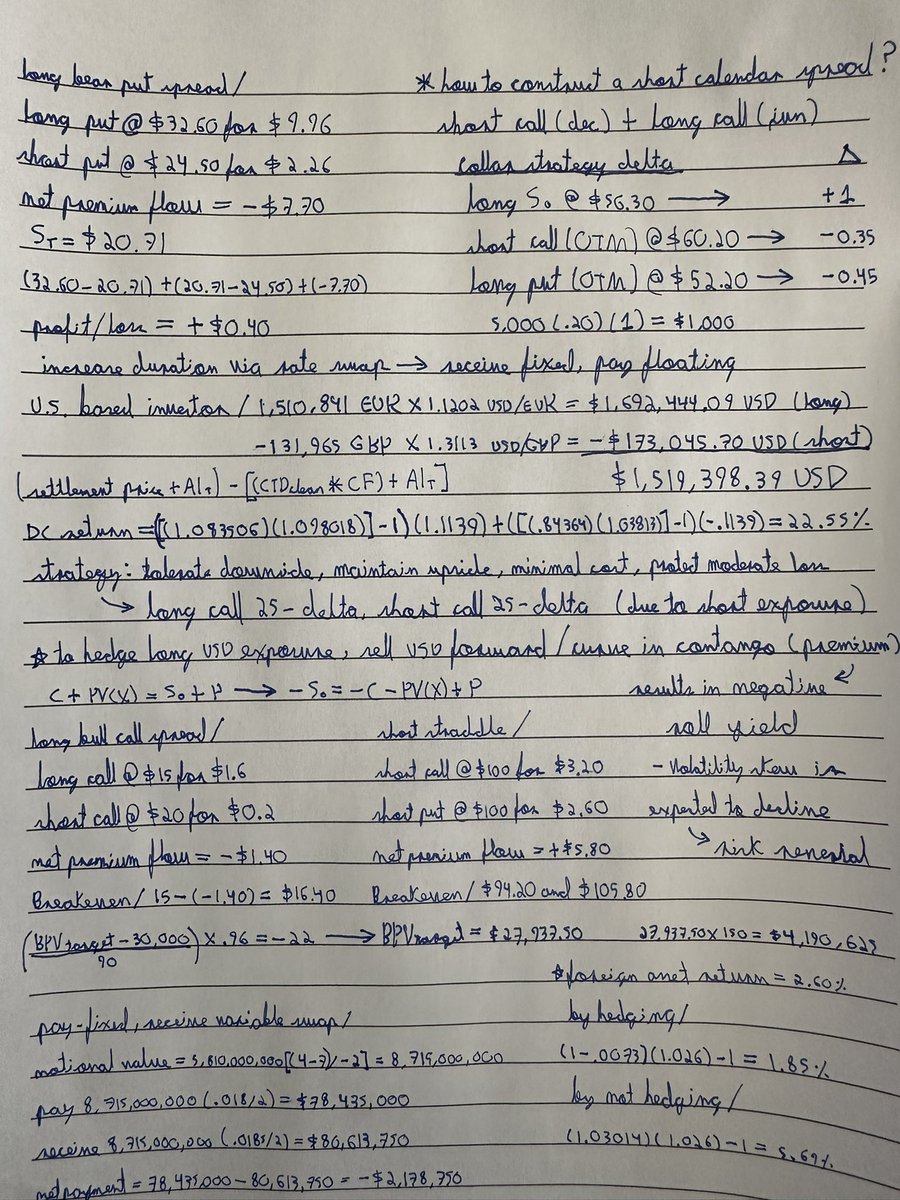 long bear put spread/
* how to construct a short calendar spread?
long put @ $32.60 for $9.96
short call (dec) + long call (jun)
short put @ $24.50 for $2.26
collar strategy delta Δ
net premium flow = -$7.70
long S₀ @ $56.30 → +1
S_T = $20.71
short call (OTM) @ $60.20 → -0.35
(32.60-20.71) + (20.71-24.50) + (-7.70)
long put (OTM) @ $52.20 → -0.45
profit/loss = +$0.40
5,000 (.20) (1) = $1,000
increase duration via rate swap → receive fixed, pay floating
U.S. based investor / 1,510,841 EUR X 1.1202 USD/EUR = $1,692,444.09 USD (long)
-131,965 GBP X 1.3113 USD/GBP = -$173,045.70 USD (short)
(settlement price + AI_T) - [(CTD clean * CF) + AI_T]
$1,519,398.39 USD
DC return = ([(1.083506)(1.098018)]-1)(1.1139) + ([(.84364)(1.03813)]-1)(-.1139) = 22.55%
strategy: tolerate downside, maintain upside, minimal cost, protect moderate loss
↳ long call 25-delta, short call 25-delta (due to short exposure)
☆ to hedge long USD exposure, sell USD forward / curve in contango (premium)
C + PV(X) = S₀ + P → -S₀ = -C - PV(X) + P
results in negative ↙
roll yield
long bull call spread/
short straddle/
long call @ $15 for $1.6
short call @ $100 for $3.20
- Volatility skew is
short call @ $20 for $0.2
short put @ $100 for $2.60
expected to decline
net premium flow = -$1.40
net premium flow = +$5.80
↳ risk reversal
Breakeven / 15-(-1.40) = $16.40
Breakeven / $94.20 and $105.80
(BPV target - 30,000 / 90) X .96 = -22 → BPV target = $27,937.50
27,937.50 X 150 = $4,190,625
☆ foreign asset return = 2.60%
pay-fixed, receive variable swap/
by hedging/
notional value = 5,810,000,000 [(4-7)/-2] = 8,715,000,000
(1-.0073)(1.026)-1 = 1.85%
pay 8,715,000,000 (.018/2) = $78,435,000
by not hedging/
receive 8,715,000,000 (.0185/2) = $80,613,750
(1.03014)(1.026)-1 = 5.69%
net payment = 78,435,000 - 80,613,750 = -$2,178,750